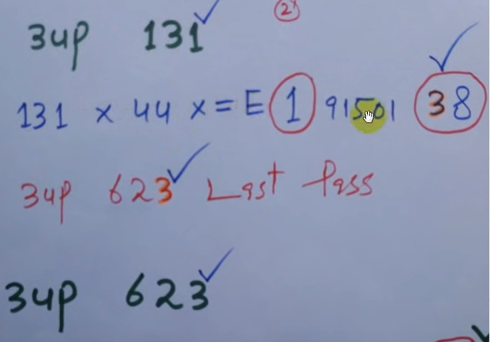 2
3up 131
131 x 44 x = E 1 91501 38
3up 623 Last Pass
3up 623